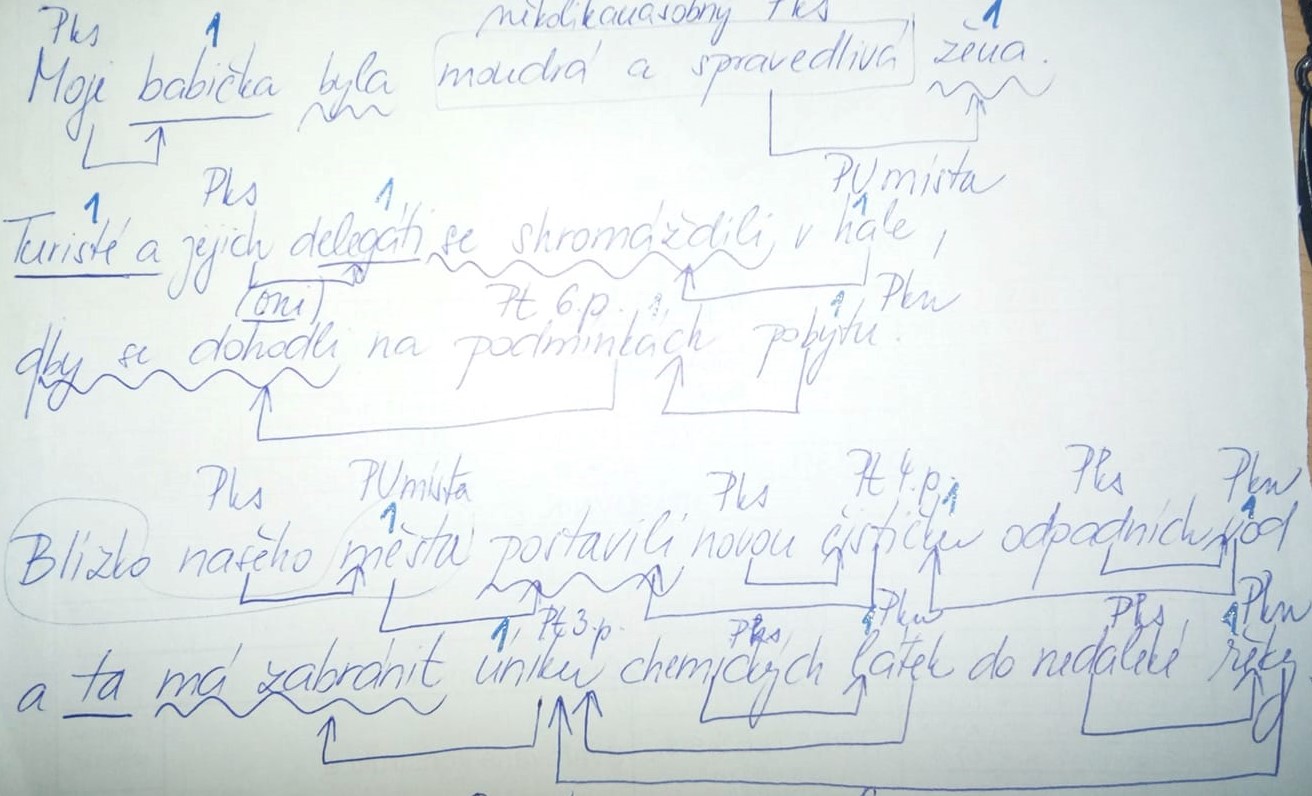 Pks 1 několikanásobný Pks 1
Moje babička byla moudrá a spravedlivá žena.
1 Pks 1 PUmísta 1
Turisté a jejich delegáti se shromáždili v hale,
(oni) Pt 6.p. 1 1 Pkn
aby se dohodli na podmínkách pobytu.
Pks PUmísta 1 Pks Pt 4.p. 1 Pks Pkn 1
Blízko našeho města postavili novou čističku odpadních vod
1 Pt 3.p. Pks 1 Pkn Pks 1 Pkn
a ta má zabránit úniku chemických látek do nedaleké řeky